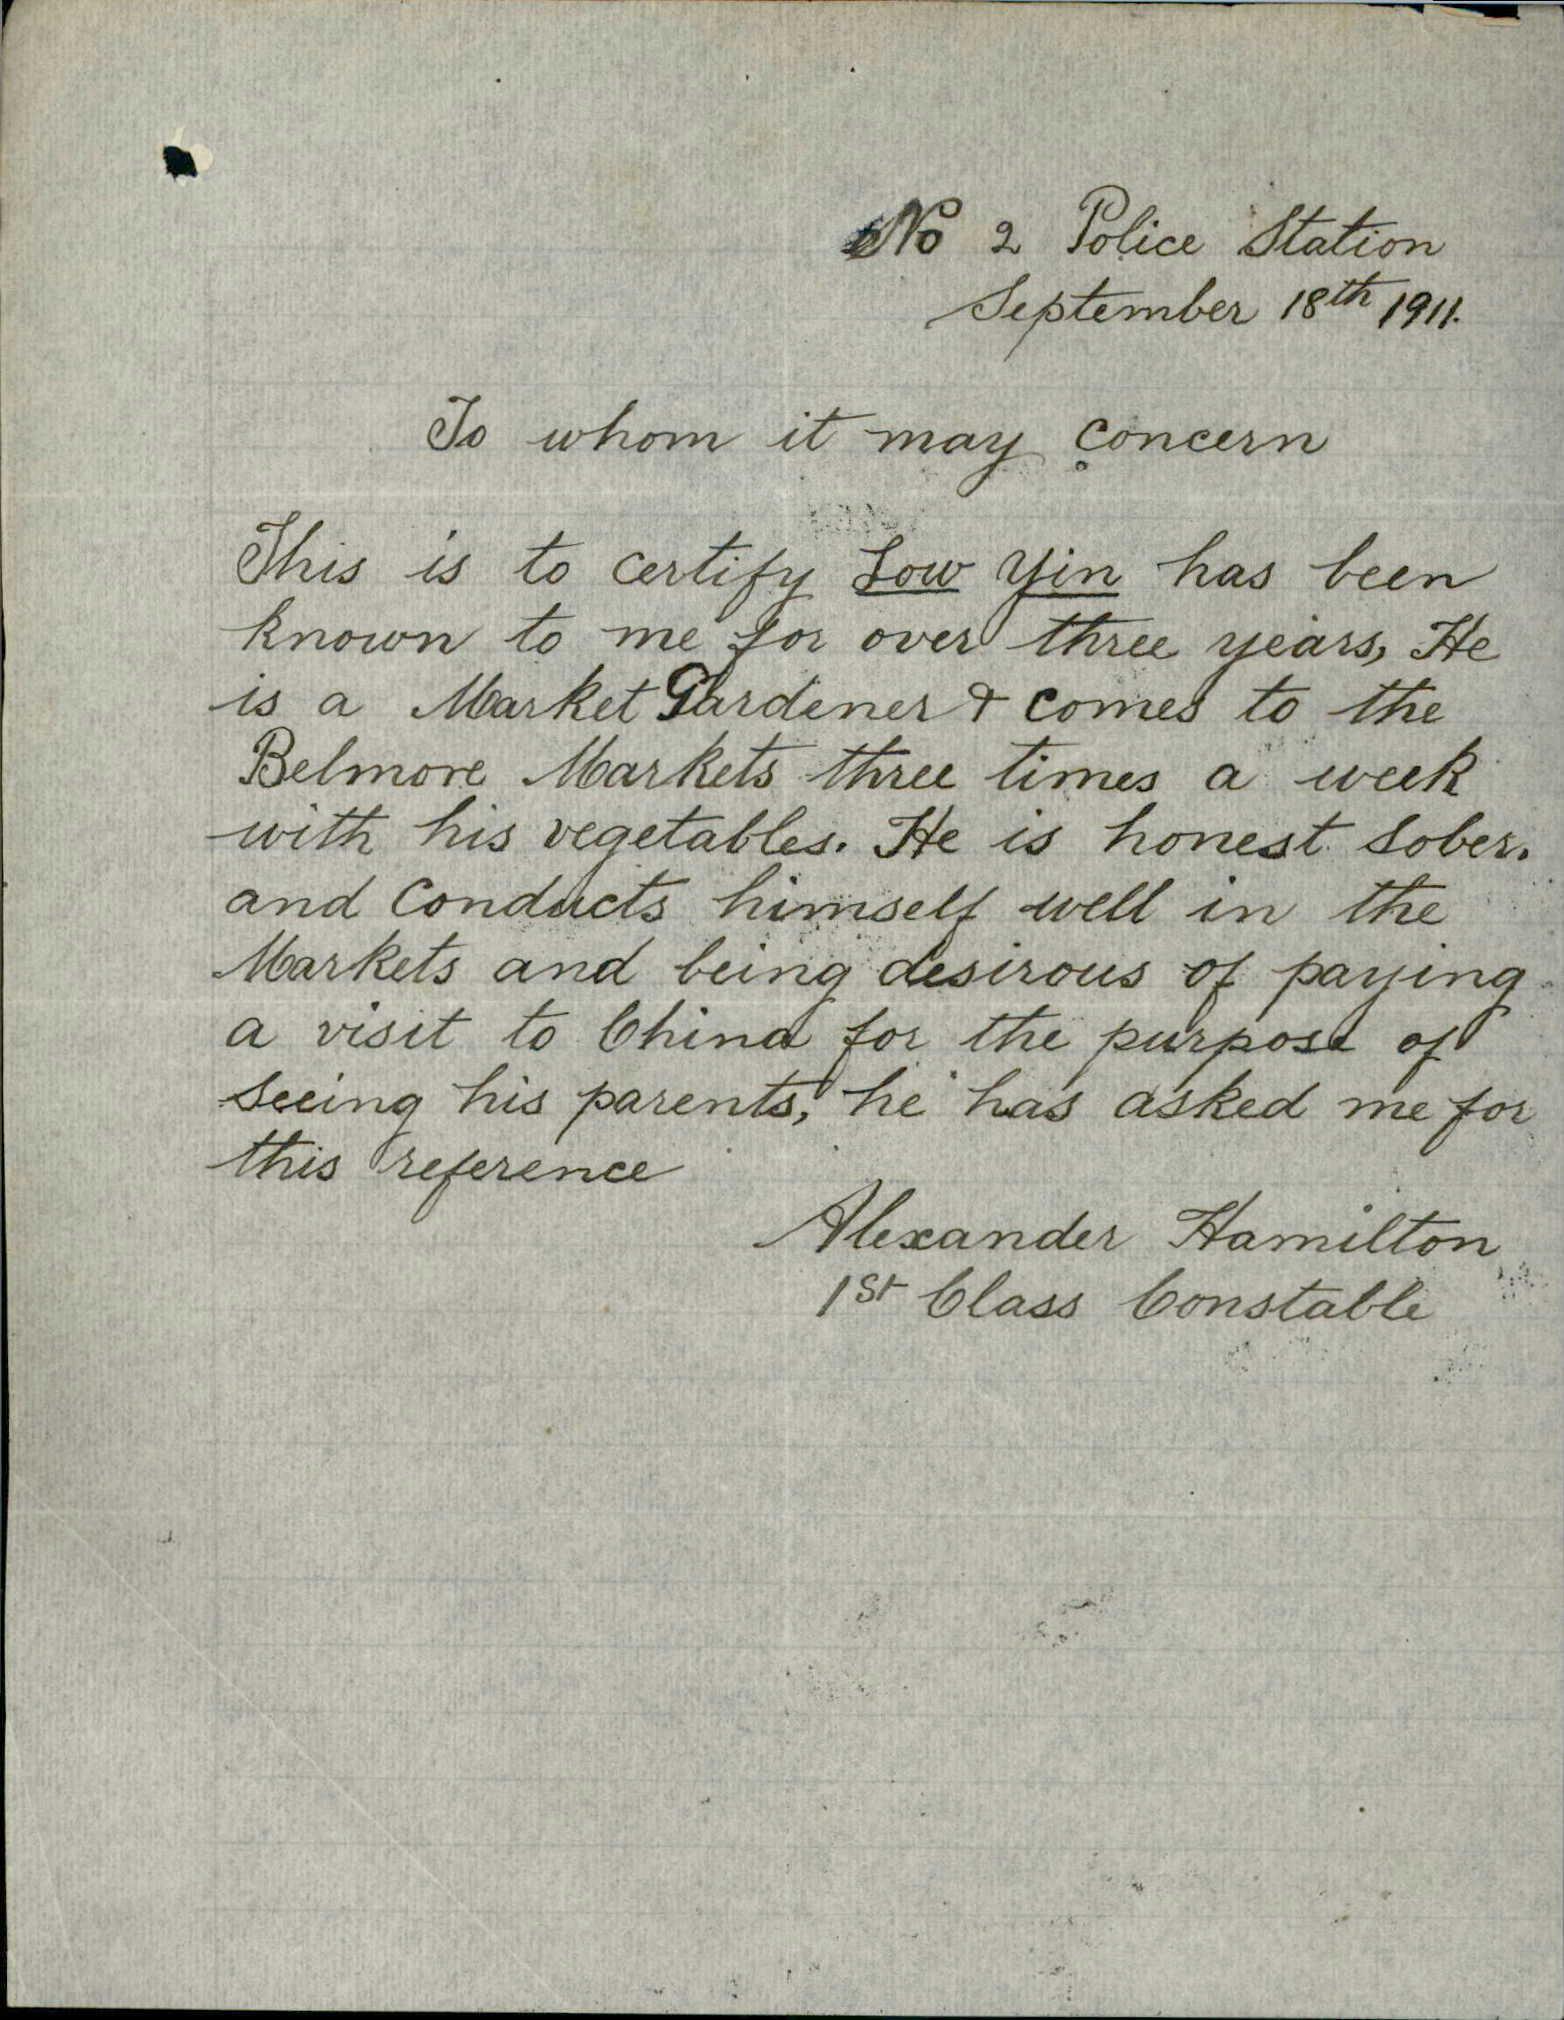 No 2 Police Station
September 18th 1911.
To whom it may concern
This is to certify Low Yin has been
known to me for over three years, He
is a Market Gardener & comes to the
Belmore Markets three times a week
with his vegetables. He is honest sober.
and conducts himself well in the
Markets and being desirous of paying
a visit to China for the purpose of
seeing his parents, he has asked me for
this reference
Alexander Hamilton
1st Class Constable